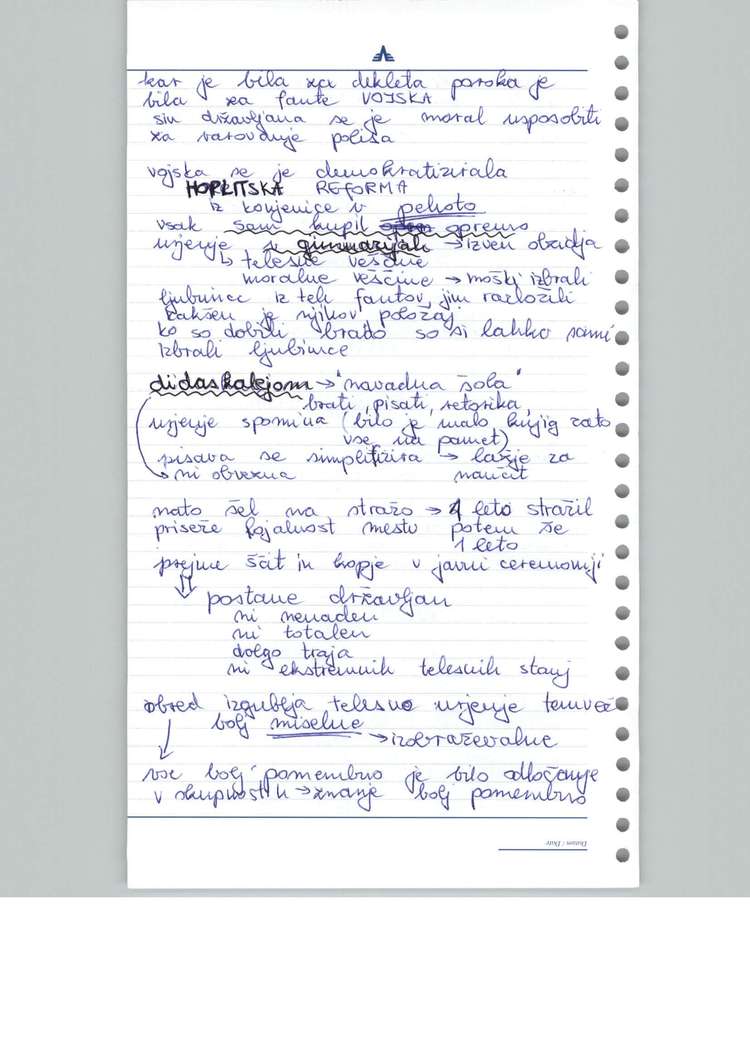 kar je bila za dekleta poroka je
bila za fante VOJSKA
sin državljana se je moral usposobiti
za varovanje polisa
vojska se je demokratizirala
HOPLITSKA REFORMA
iz konjenice v pehoto
vsak sam kupil opremo
urjenje v gimnazijah → izven obzidja
↳ telesne veščine
moralne veščine → moški izbrali
ljubimce iz teh fantov, jim razložili
kakšen je njihov položaj
ko so dobili brado so si lahko sami
izbrali ljubimce
didaskalejom → "navadna šola"
brati, pisati, retorika,
urjenje spomina (bilo je malo knjig zato
vse na pamet)
pisava se simplificira → lažje za
naučit
→ ni obvezna
nato šel na stražo → 1 leto stražil
priseže lojalnost mestu potem še
1 leto
prejme ščit in kopje v javni ceremoniji
⇓ postane državljan
ni nenaden
ni totalen
dolgo traja
ni ekstremnih telesnih stanj
obred izgublja telesno urjenje temveč
bolj miselne
→ izobraževalne
vse bolj pomembno je bilo odločanje
v skupnosti → znanje bolj pomembno
Datum / Date